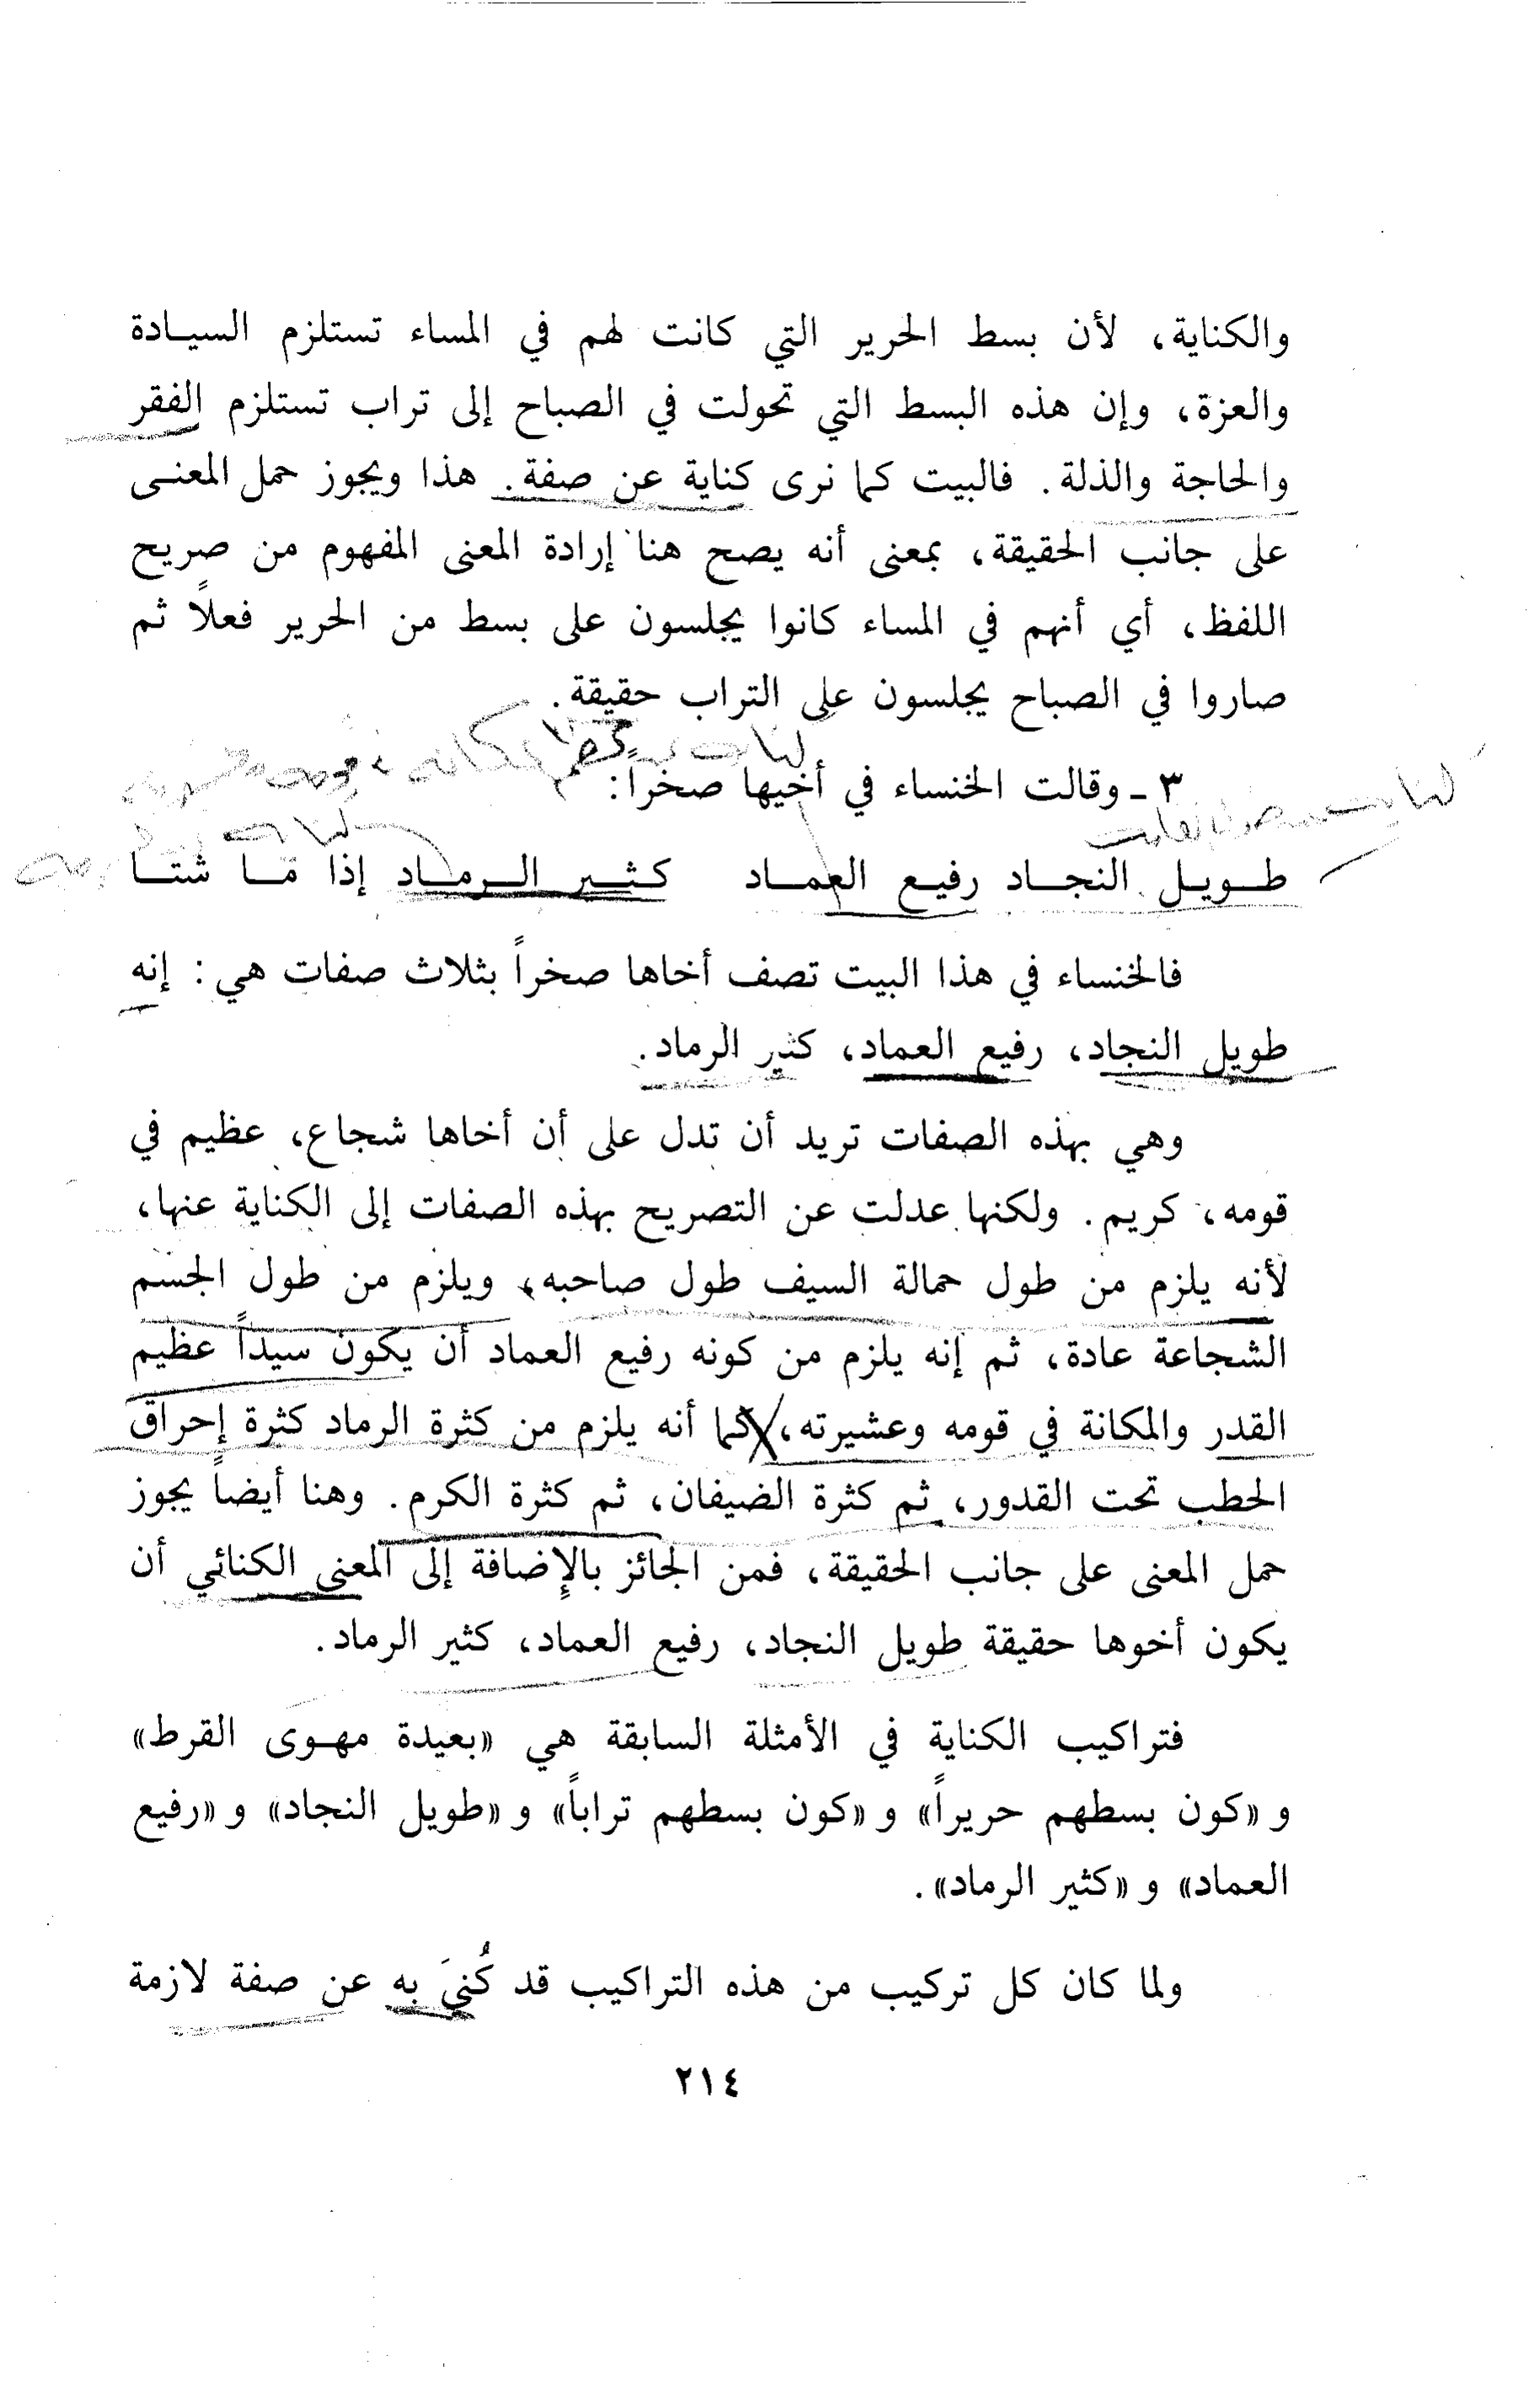 والكناية، لأن بسط الحرير التي كانت لهم في المساء تستلزم السيادة
والعزة، وإن هذه البسط التي تحولت في الصباح إلى تراب تستلزم الفقر
والحاجة والذلة. فالبيت كما نرى كناية عن صفة. هذا ويجوز حمل المعنى
على جانب الحقيقة، بمعنى أنه يصح هنا إرادة المعنى المفهوم من صريح
اللفظ، أي أنهم في المساء كانوا يجلسون على بسط من الحرير فعلاً ثم
صاروا في الصباح يجلسون على التراب حقيقة.
٣ ـ وقالت الخنساء في أخيها صخراً:
طويل النجاد رفيع العماد كثير الرماد إذا ما شتا
فالخنساء في هذا البيت تصف أخاها صخراً بثلاث صفات هي: إنه
طويل النجاد، رفيع العماد، كثير الرماد.
وهي بهذه الصفات تريد أن تدل على أن أخاها شجاع، عظيم في
قومه، كريم. ولكنها عدلت عن التصريح بهذه الصفات إلى الكناية عنها،
لأنه يلزم من طول حمالة السيف طول صاحبه، ويلزم من طول الجسم
الشجاعة عادة، ثم إنه يلزم من كونه رفيع العماد أن يكون سيداً عظيم
القدر والمكانة في قومه وعشيرته، كما أنه يلزم من كثرة الرماد كثرة إحراق
الحطب تحت القدور، ثم كثرة الضيفان، ثم كثرة الكرم. وهنا أيضاً يجوز
حمل المعنى على جانب الحقيقة، فمن الجائز بالإضافة إلى المعنى الكنائي أن
يكون أخوها حقيقة طويل النجاد، رفيع العماد، كثير الرماد.
فتراكيب الكناية في الأمثلة السابقة هي «بعيدة مهوى القرط»
و «كون بسطهم حريراً» و «كون بسطهم تراباً» و «طويل النجاد» و «رفيع
العماد» و «كثير الرماد».
ولما كان كل تركيب من هذه التراكيب قد كُنيَ به عن صفة لازمة
٢١٤